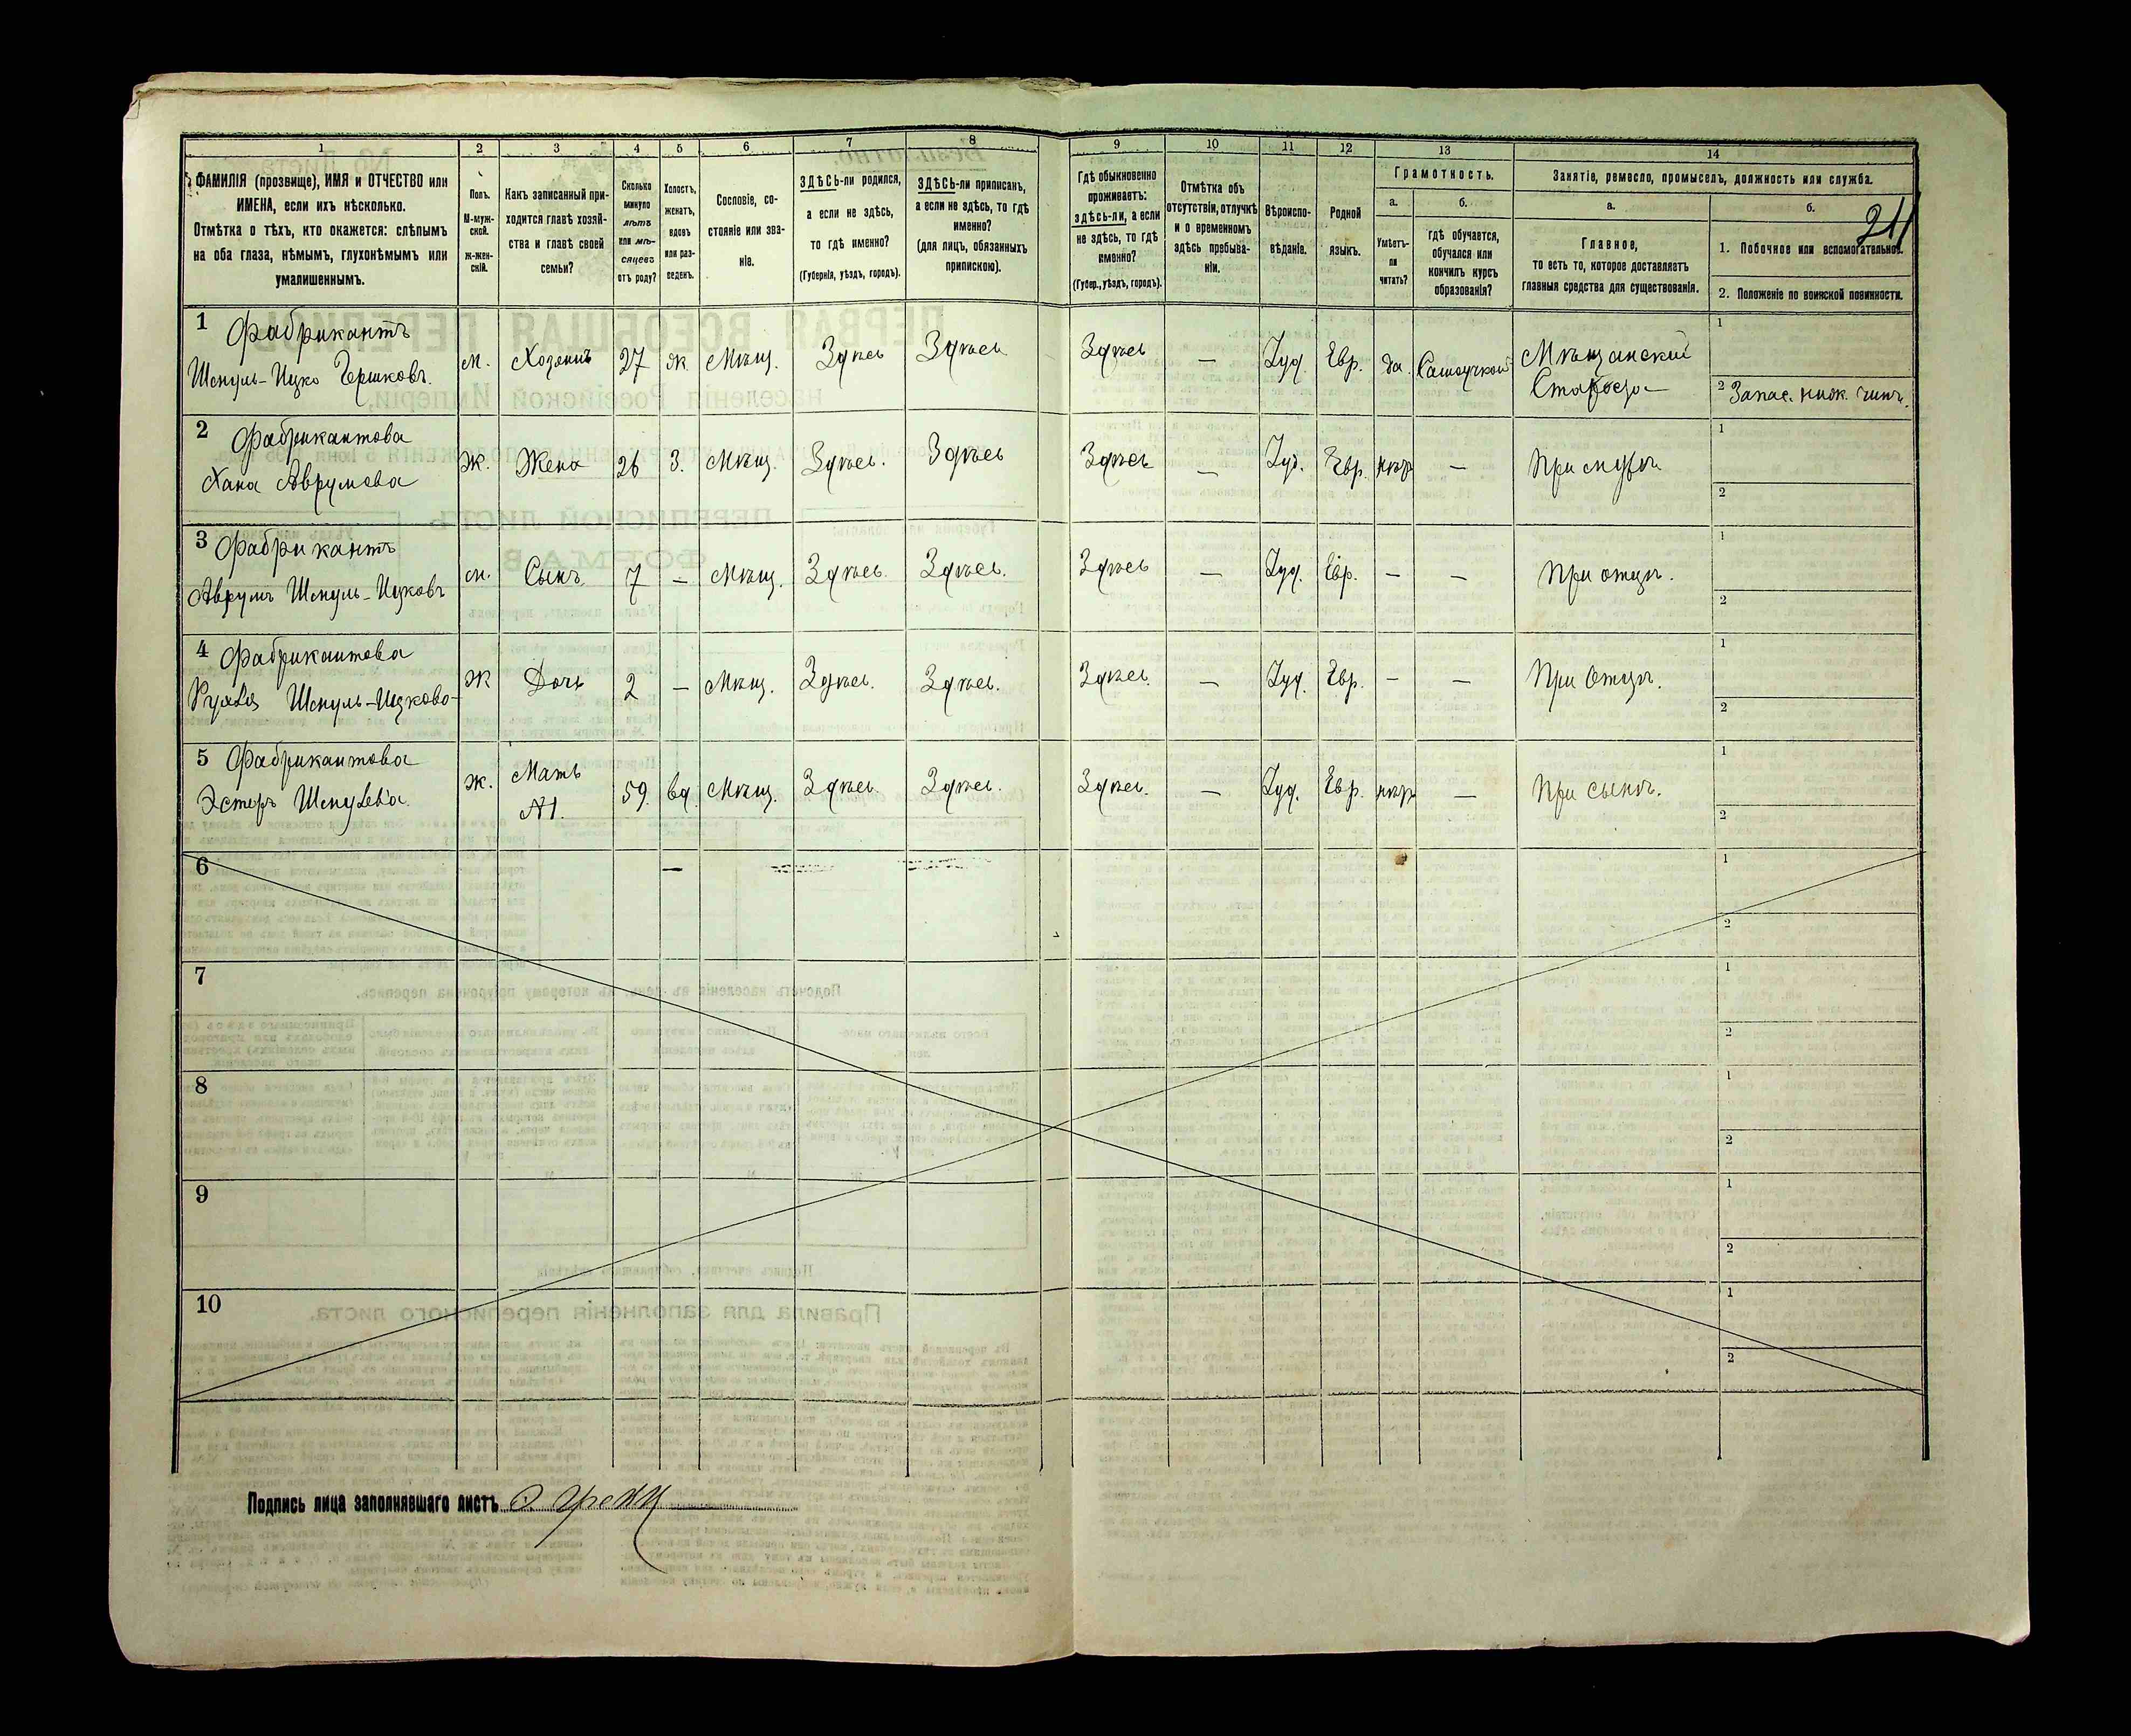 1
2
3
4
5
6
7
8
9
10
11
12
13
14
ФАМИЛІЯ (прозвище), ИМЯ и ОТЧЕСТВО или
ИМЕНА, если ихъ нѣсколько.
Отмѣтка о тѣхъ, кто окажется: слѣпымъ
на оба глаза, нѣмымъ, глухонѣмымъ или
умалишеннымъ.
Полъ.
М-муж-
ской.
Ж-жен-
скій.
Какъ записанный при-
ходится главѣ хозяй-
ства и главѣ своей
семьи?
Сколько
минуло
лѣтъ
или мѣ-
сяцевъ
отъ роду?
Холостъ,
женатъ,
вдовъ
или раз-
веденъ.
Сословіе, со-
стояніе или зва-
ніе.
ЗДѢСЬ-ли родился,
а если не здѣсь,
то гдѣ именно?
(Губернія, уѣздъ, городъ).
ЗДѢСЬ-ли приписанъ,
а если не здѣсь, то гдѣ
именно?
(для лицъ, обязанныхъ
припискою).
Гдѣ обыкновенно
проживаетъ:
здѣсь-ли, а если
не здѣсь, то гдѣ
именно?
(Губер., уѣздъ, городъ).
Отмѣтка объ
отсутствіи, отлучкѣ
и о временномъ
здѣсь пребыва-
ніи.
Вѣроиспо-
вѣданіе.
Родной
языкъ.
Грамотность.
а.
Умѣетъ-
ли
читать?
б.
гдѣ обучается,
обучался или
кончилъ курсъ
образованія?
Занятіе, ремесло, промыселъ, должность или служба.
а.
Главное,
то есть то, которое доставляетъ
главныя средства для существованія.
б.
1. Побочное или вспомогательное.
2. Положеніе по воинской повинности.
1 Фабрикантъ
Шмуль-Ицко Гершковъ.
м. Хозяинъ 27 ж. Мѣщ. Здѣсь Здѣсь Здѣсь — Іуд. Евр. да. Самоучкой
Мѣщанскій
Староста
1
2 Запас. ниж. чинъ.
2 Фабрикантова
Хана Аврумова
Ж. Жена 26 З. Мѣщ. Здѣсь. Здѣсь Здѣсь — Іуд. Евр. нѣтъ — При мужѣ
1
2
3 Фабрикантъ
Аврумъ Шмуль-Ицковъ
м. Сынъ 7 — Мѣщ. Здѣсь. Здѣсь. Здѣсь — Іуд. Евр. — — При отцѣ.
1
2
4 Фабрикантова
Рухля Шмуль-Ицкова
Ж Дочь 2 — Мѣщ. Здѣсь. Здѣсь. Здѣсь. — Іуд. Евр. — — При Отцѣ.
1
2
5 Фабрикантова
Эстеръ Шмулева
Ж. Мать
№1.
59. вд. Мѣщ. Здѣсь Здѣсь. Здѣсь. — Іуд. Евр. нѣтъ — При сынѣ.
1
2
6
1
2
7
1
2
8
1
2
9
1
2
10
1
2
Подпись лица заполнявшаго листъ